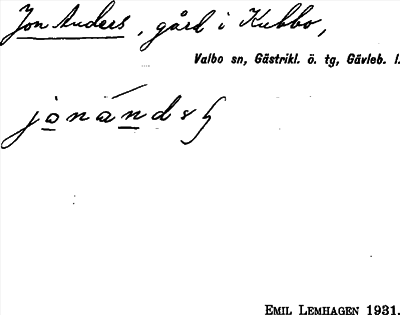 Jon Anders, gård i Kubbo,
Valbo sn, Gästrikl. ö. tg, Gävleb. l.
EMIL LEMHAGEN 1931.